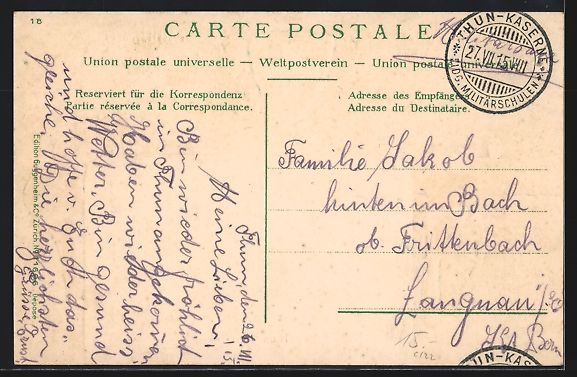 18
CARTE POSTALE
Union postale universelle — Weltpostverein — Union postale universelle
Militärsache
THUN-KASERNE
27.VII.15.VIII
EIDG. MILITÄRSCHULEN
Reserviert für die Korrespondenz
Partie réservée à la Correspondance.
Adresse des Empfängers.
Adresse du Destinataire.
Thun, den 26. VII. 15.
Meine Lieben!
Bin wieder fröhlich
in Thun angekommen,
Haben wieder heiss.
Wetter. Bin gesund
und hoffe v. Euch das-
gleiche. Die herzlichsten
Grüsse Ernst
Edition Guggenheim & Co., Zürich
Familie Jakob
hinten im Bach
ob. Frittenbach
Langnau i/E
Kt. Bern
15.
UN-KAS